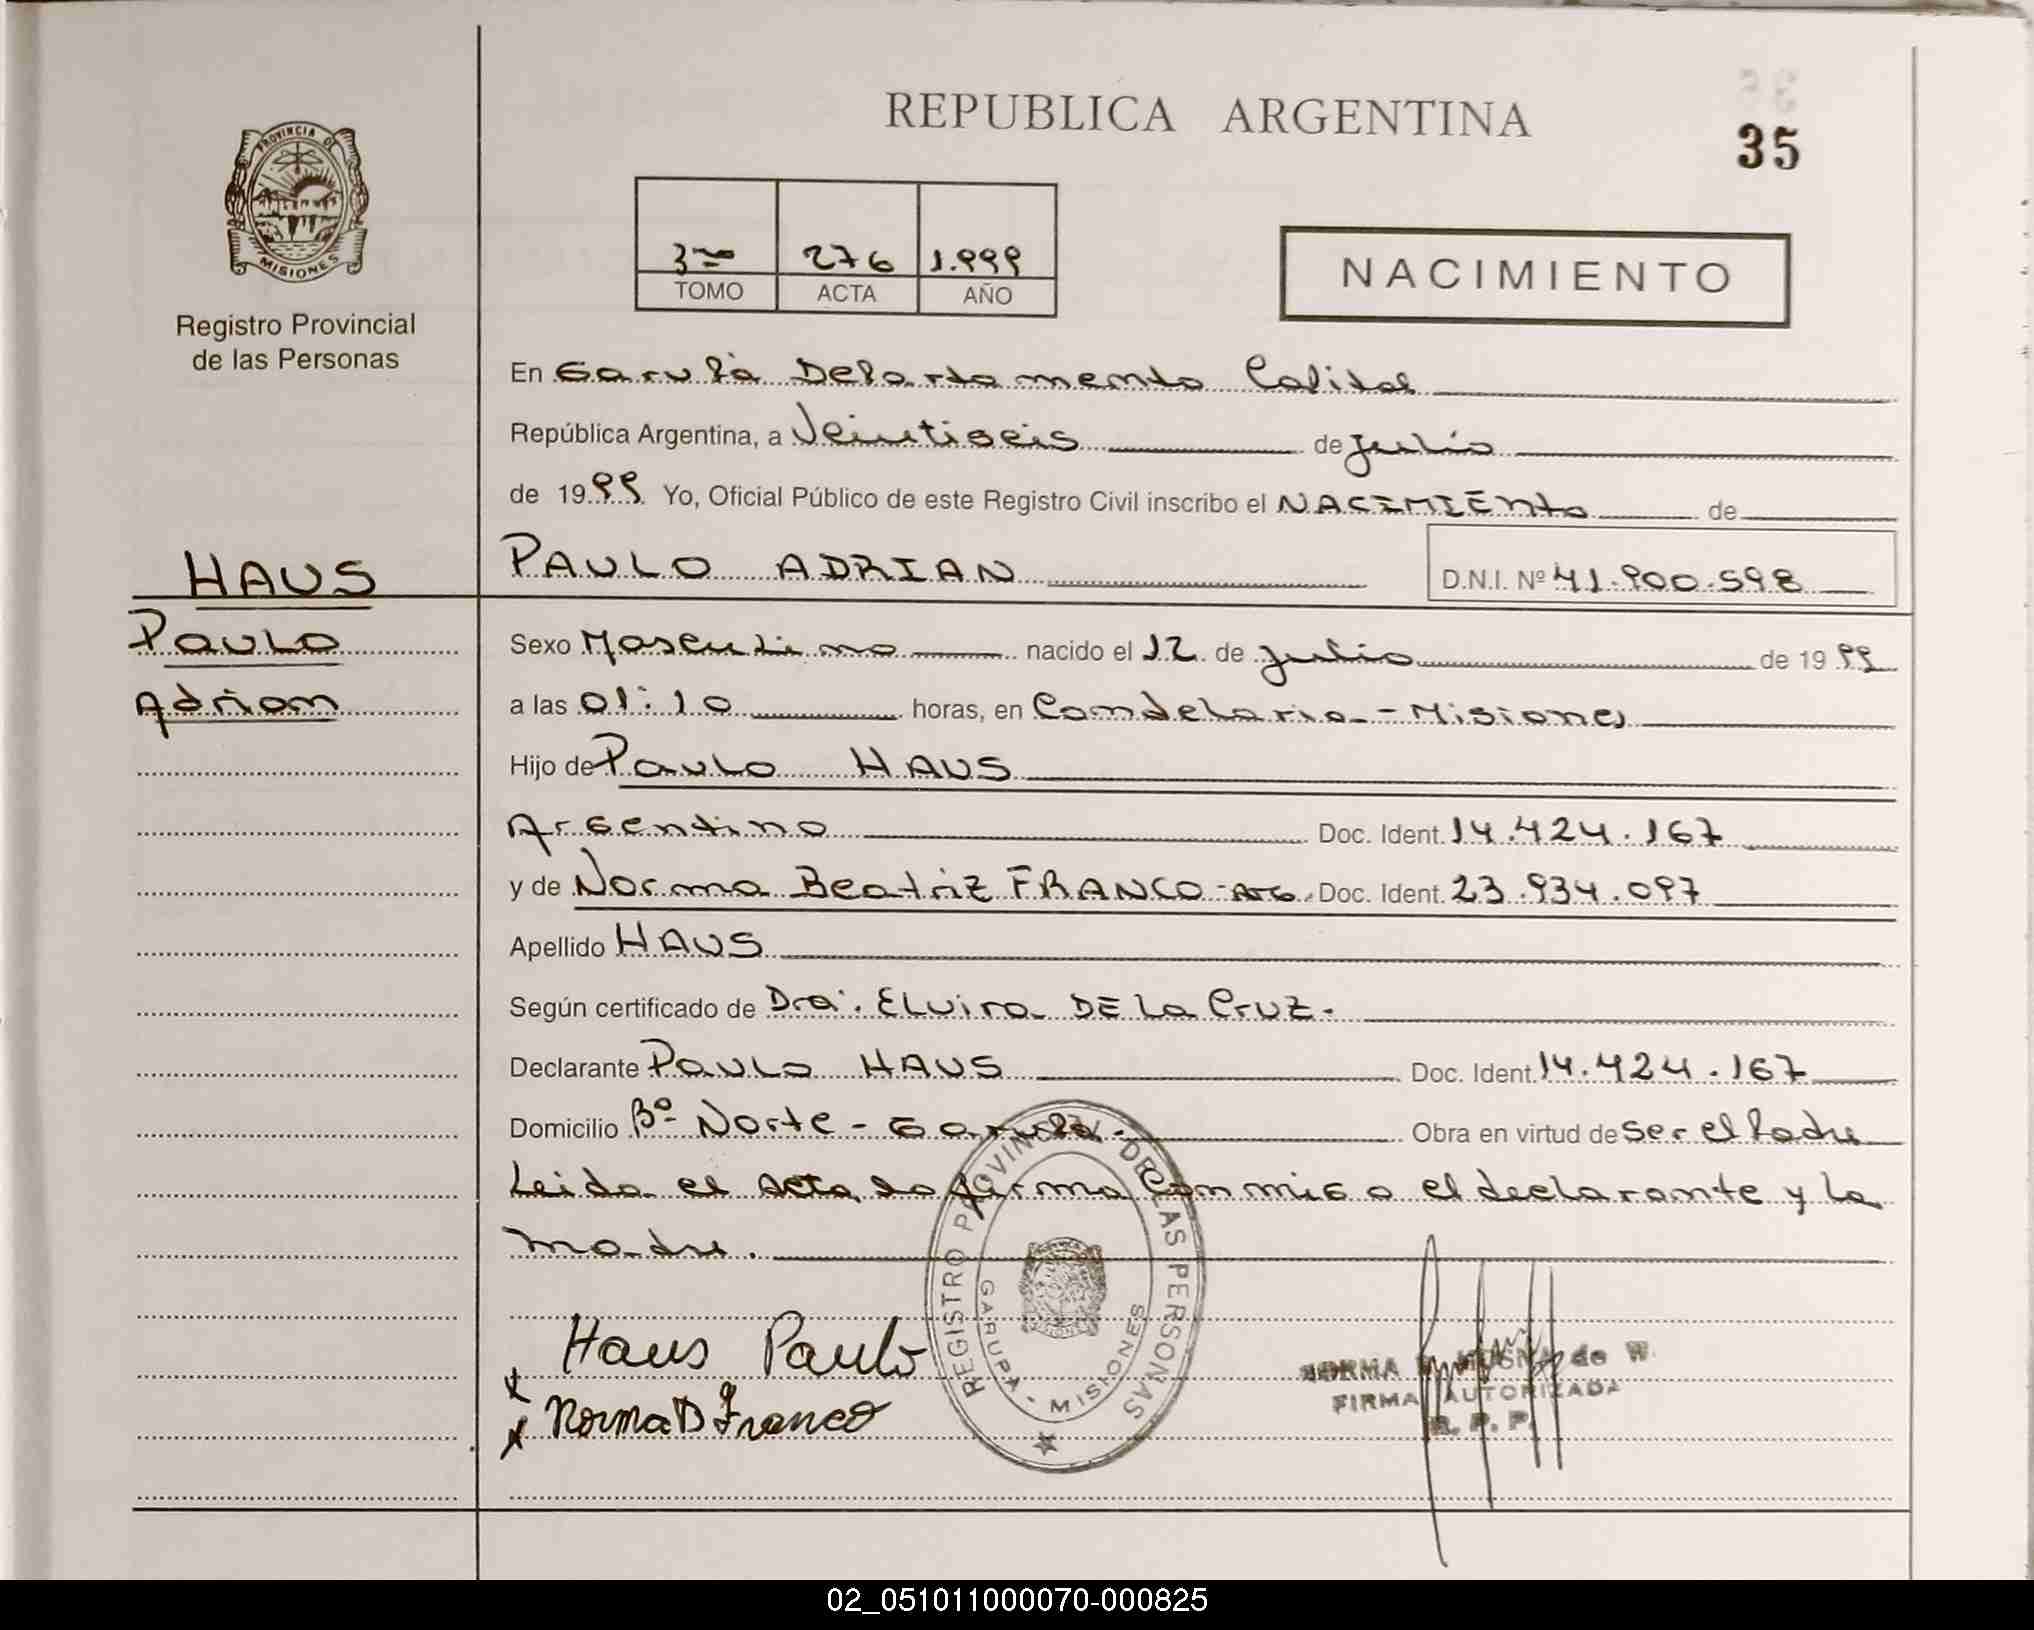 REPUBLICA ARGENTINA
35
PROVINCIA DE
MISIONES
Registro Provincial
de las Personas
3ro 276 1.999
TOMO ACTA AÑO
NACIMIENTO
En Garupá Departamento Capital
República Argentina, a Veintiseis de julio
de 1999 Yo, Oficial Público de este Registro Civil inscribo el NACIMIENto de
HAUS
Paulo
Adrian
PAULO ADRIAN D.N.I. Nº 41.900.598
Sexo Masculino nacido el 12 de julio de 1999
a las 01:10 horas, en Candelaria - Misiones
Hijo de Paulo HAUS
Argentino Doc. Ident. 14.424.167
y de Norma Beatriz FRANCO - Arg. Doc. Ident. 23.934.097
Apellido HAUS
Según certificado de Dra. Elvira DE La Cruz.
Declarante Paulo HAUS Doc. Ident. 14.424.167
Domicilio Bº Norte - Garupá. Obra en virtud de ser el Padre
Leida el acta la firma Conmigo el declarante y la
madre.
Haus Paulo
Norma B Franco
REGISTRO PROVINCIAL DE LAS PERSONAS
GARUPA - MISIONES
NORMA de W.
FIRMA AUTORIZADA
R. P. P.
02_051011000070-000825